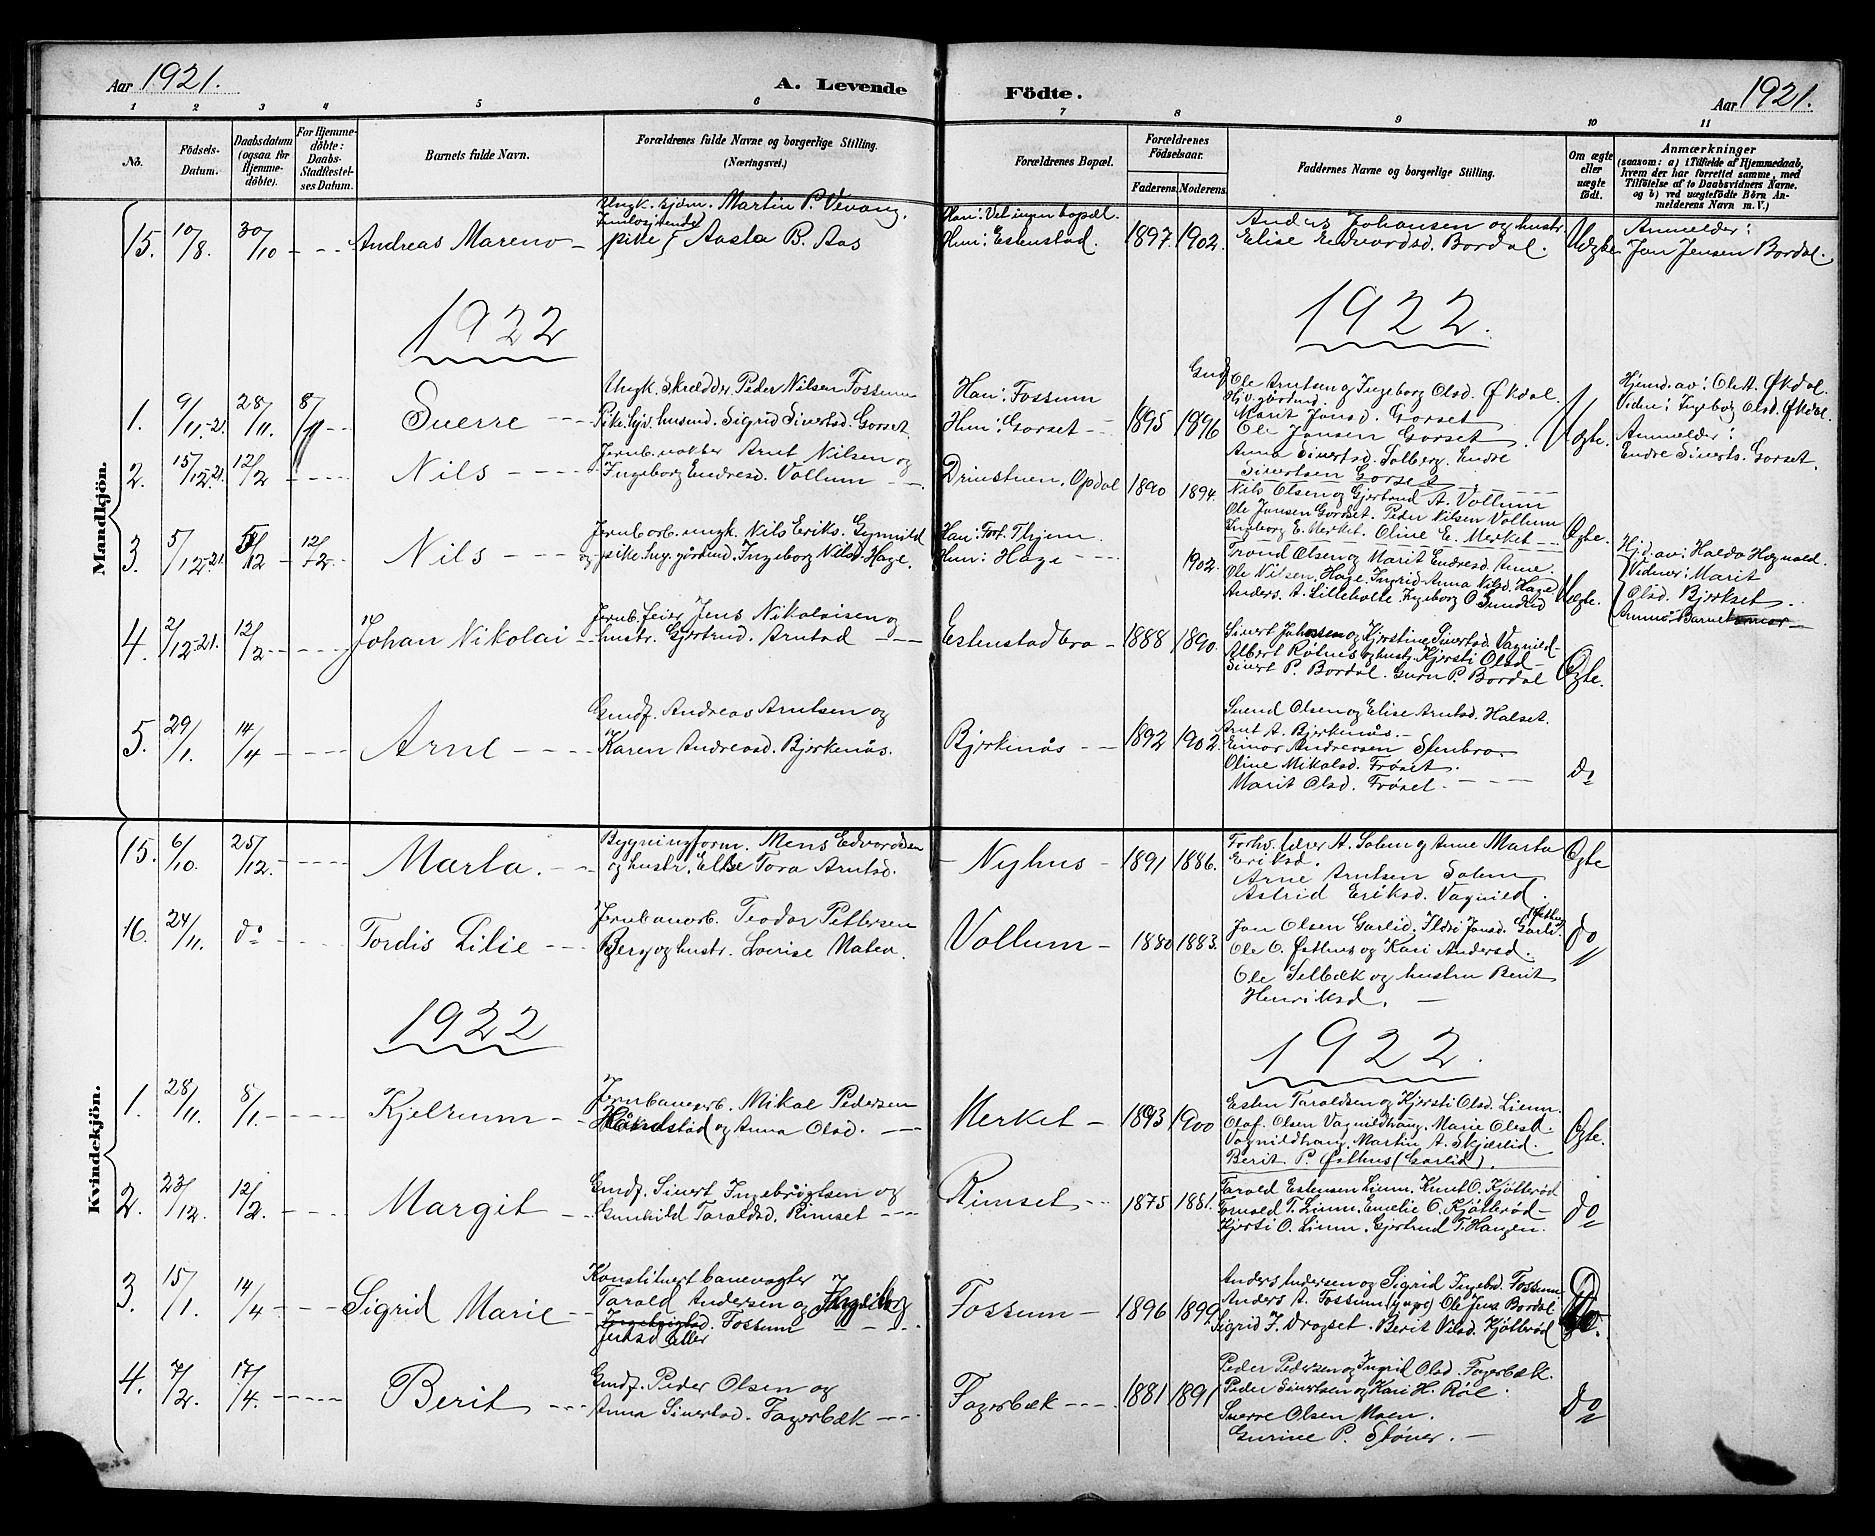 Aar 1921. A. Levende Födte. Aar 1921.
1 2 3 4 5 6 7 8 9 10 11
No. Födsels-Datum. Daabsdatum (ogsaa for Hjemme-döbte). For Hjemme-döbte: Daabs-Stadfæstel-ses Datum. Barnets fulde Navn. Forældrenes fulde Navne og borgerlige Stilling. (Næringsvei.) Forældrenes Bopæl. Forældrenes Födselsaar. Faderens. Moderens. Faddernes Navne og borgerlige Stilling. Om ægte eller uægte født. Anmærkninger (saasom: a) i Tilfælde af Hjemmedaab, hvem der har forrettet samme, med Tilföielse af to Daabsvidners Navne. og b) ved uægtefödte Börn An-melderens Navn m. V.)
Mandkjön.
15. 10/8. 30/10 Andreas Mareno
Ungk. Martin P. Vevang.
pike Aasta B. Aas
Han: Vet ingen bopæl.
Hun: Estenstad. 1897. 1902.
Anders Johansen og hustr
Elise Edvardsd. Bordal. Uægte
Anmelder:
Jon Jensen Bordal.
1922 1922.
1. 9/11.-21. 28/11. 8/1 Sverre
Ungk. Skrædder Peder Nilsen Fossum
Pike Sigrid Sivertsd. Gorset.
Han: Fossum
Hun: Gorset 1895 1896
Ole Arntsen og Ingeborg Olsd. Økdal.
Marit Jonsd. Gorset
Ole Jonsen Gorset
Anna Sivertsd. Solberg. Endre
Sivertsen Gorset
Uægte.
Hjemd. av: Ole A. Økdal.
Vidne: Ingebog Olsd. Økdal.
Anmelder:
Endre Siverts. Gorset.
2. 15/12.21. 12/2 Nils
Jernb. vokter Arnt Nilsen og
Ingeborg Endresd. Vollum
Drivstuen, Opdal 1890 1894.
Nils Olsen og Gjertrud A. Vollum
Ole Jonsen Gorset. Peder Nilsen Vollum
Ingeborg E. Merket. Oline E. Merket
Ægte.
3. 5/12-21. 12/2. Nils
Jernb. arb. ungk. Nils Eriks.
og pike Ingeborg Nilsd. Hage.
Han:
Hun: Hage 1902.
Trond Olsen og Marit Endresd. Aune.
Ole Nilsen Hage. Ingrid Anna Nilsd. Hage
Anders A. Lilleholte. Ingeborg O.
Uægte.
Hjd. av: Haldo Hognald.
Vidner: Marit
Olsd. Bjørkset.
4. 2/12-21. 12/2 Johan Nikolai
Jernb. feier Jens Nikolaisen og
hustr. Gjertrud. Arntsd
Estenstadbra 1888 1890.
Sivert Johansen og Kjerstine Sivertsd. Vagnild
Albert Rötnes og hustr. Kjersti Olsd
Sivert P. Bordal. Guru P. Bordal
Ægte.
5. 29/1. 14/4 Arne
Gmdf. Andreas Arntsen og
Karen Andreasd. Bjerkenås.
Bjerkenås 1892 1902.
Svend Olsen og Elise Arntsd. Halset.
Arnt A. Bjerkenås.
Einar Andersen Stenbro.
Oline Mikalsd. Frøset.
Marit Olsd. Frøset.
do
Kvindekjön.
15. 6/10. 25/12. Marta.
Bygningsform. Mons Edvardsen
og hustr. Else Tora Arntsd.
Nyhus 1891 1886.
Forhv. lærer A. Solem og Anne Marta
Eriksd.
Arne Arntsen Solem
Astrid Eriksd. Vagnild.
Ægte
16. 24/11. do Tordis Lilie
Jernbanearb. Teodor Pettersen
Berg og hustr. Lovise Matea.
Vollum 1880 1883.
Jon Olsen Garlid, Ildri Jonsd. Garlid
Ole O. Østhus og Kari Andersd.
Ole Selbæk og hustru Berit
Henriksd.
do
1922 1922.
1. 28/11. 8/1. Kjelrum
Jernbanearb. Mikal Pedersen
og Anna Olsd.
Merket 1893 1900
Esten Taraldsen og Kjersti Olsd. Lium.
Olaf Olsen Vagnildhaug. Marie Olesd.
Vagnildhaug. Martin A. Skjærlid.
Berit P. Østhus (Garlid).
Ægte.
2. 23/12. 12/2. Margit
Gmdf. Sivert Ingebrigtsen og
Gunhild Taraldsd. Rimset
Rimset 1875 1881.
Tarald Estensen Lium. Knut O. Kjötterød
Tomold T. Lium. Emelie O. Kjötterød
Kjersti O. Lium. Gjertrud T. Haugen.
do
3. 15/1. 14/4 Sigrid Marie
Konstituert banevogter
Tarald Andersen og Ingeborg
Fossum
Jensd. eller
Fossum 1896 1899
Anders Andersen og Sigrid Ingebd. Fossum
Anders A. Fossum (yngre) Ole Jens Bordal
Sigrid J. Drogset. Berit Nilsd. Kjötterød
4. 7/2 17/4. Berit
Gmdf. Peder Olsen og
Anna Sivertsd. Fagerbæk
Fagerbæk 1881 1891
Peder Pedersen og Ingrid Olsd. Fagerbæk.
Peder Sivertsen og Kari H. Røl.
Sverre Olsen Moen.
Gurine P. Støver.
do